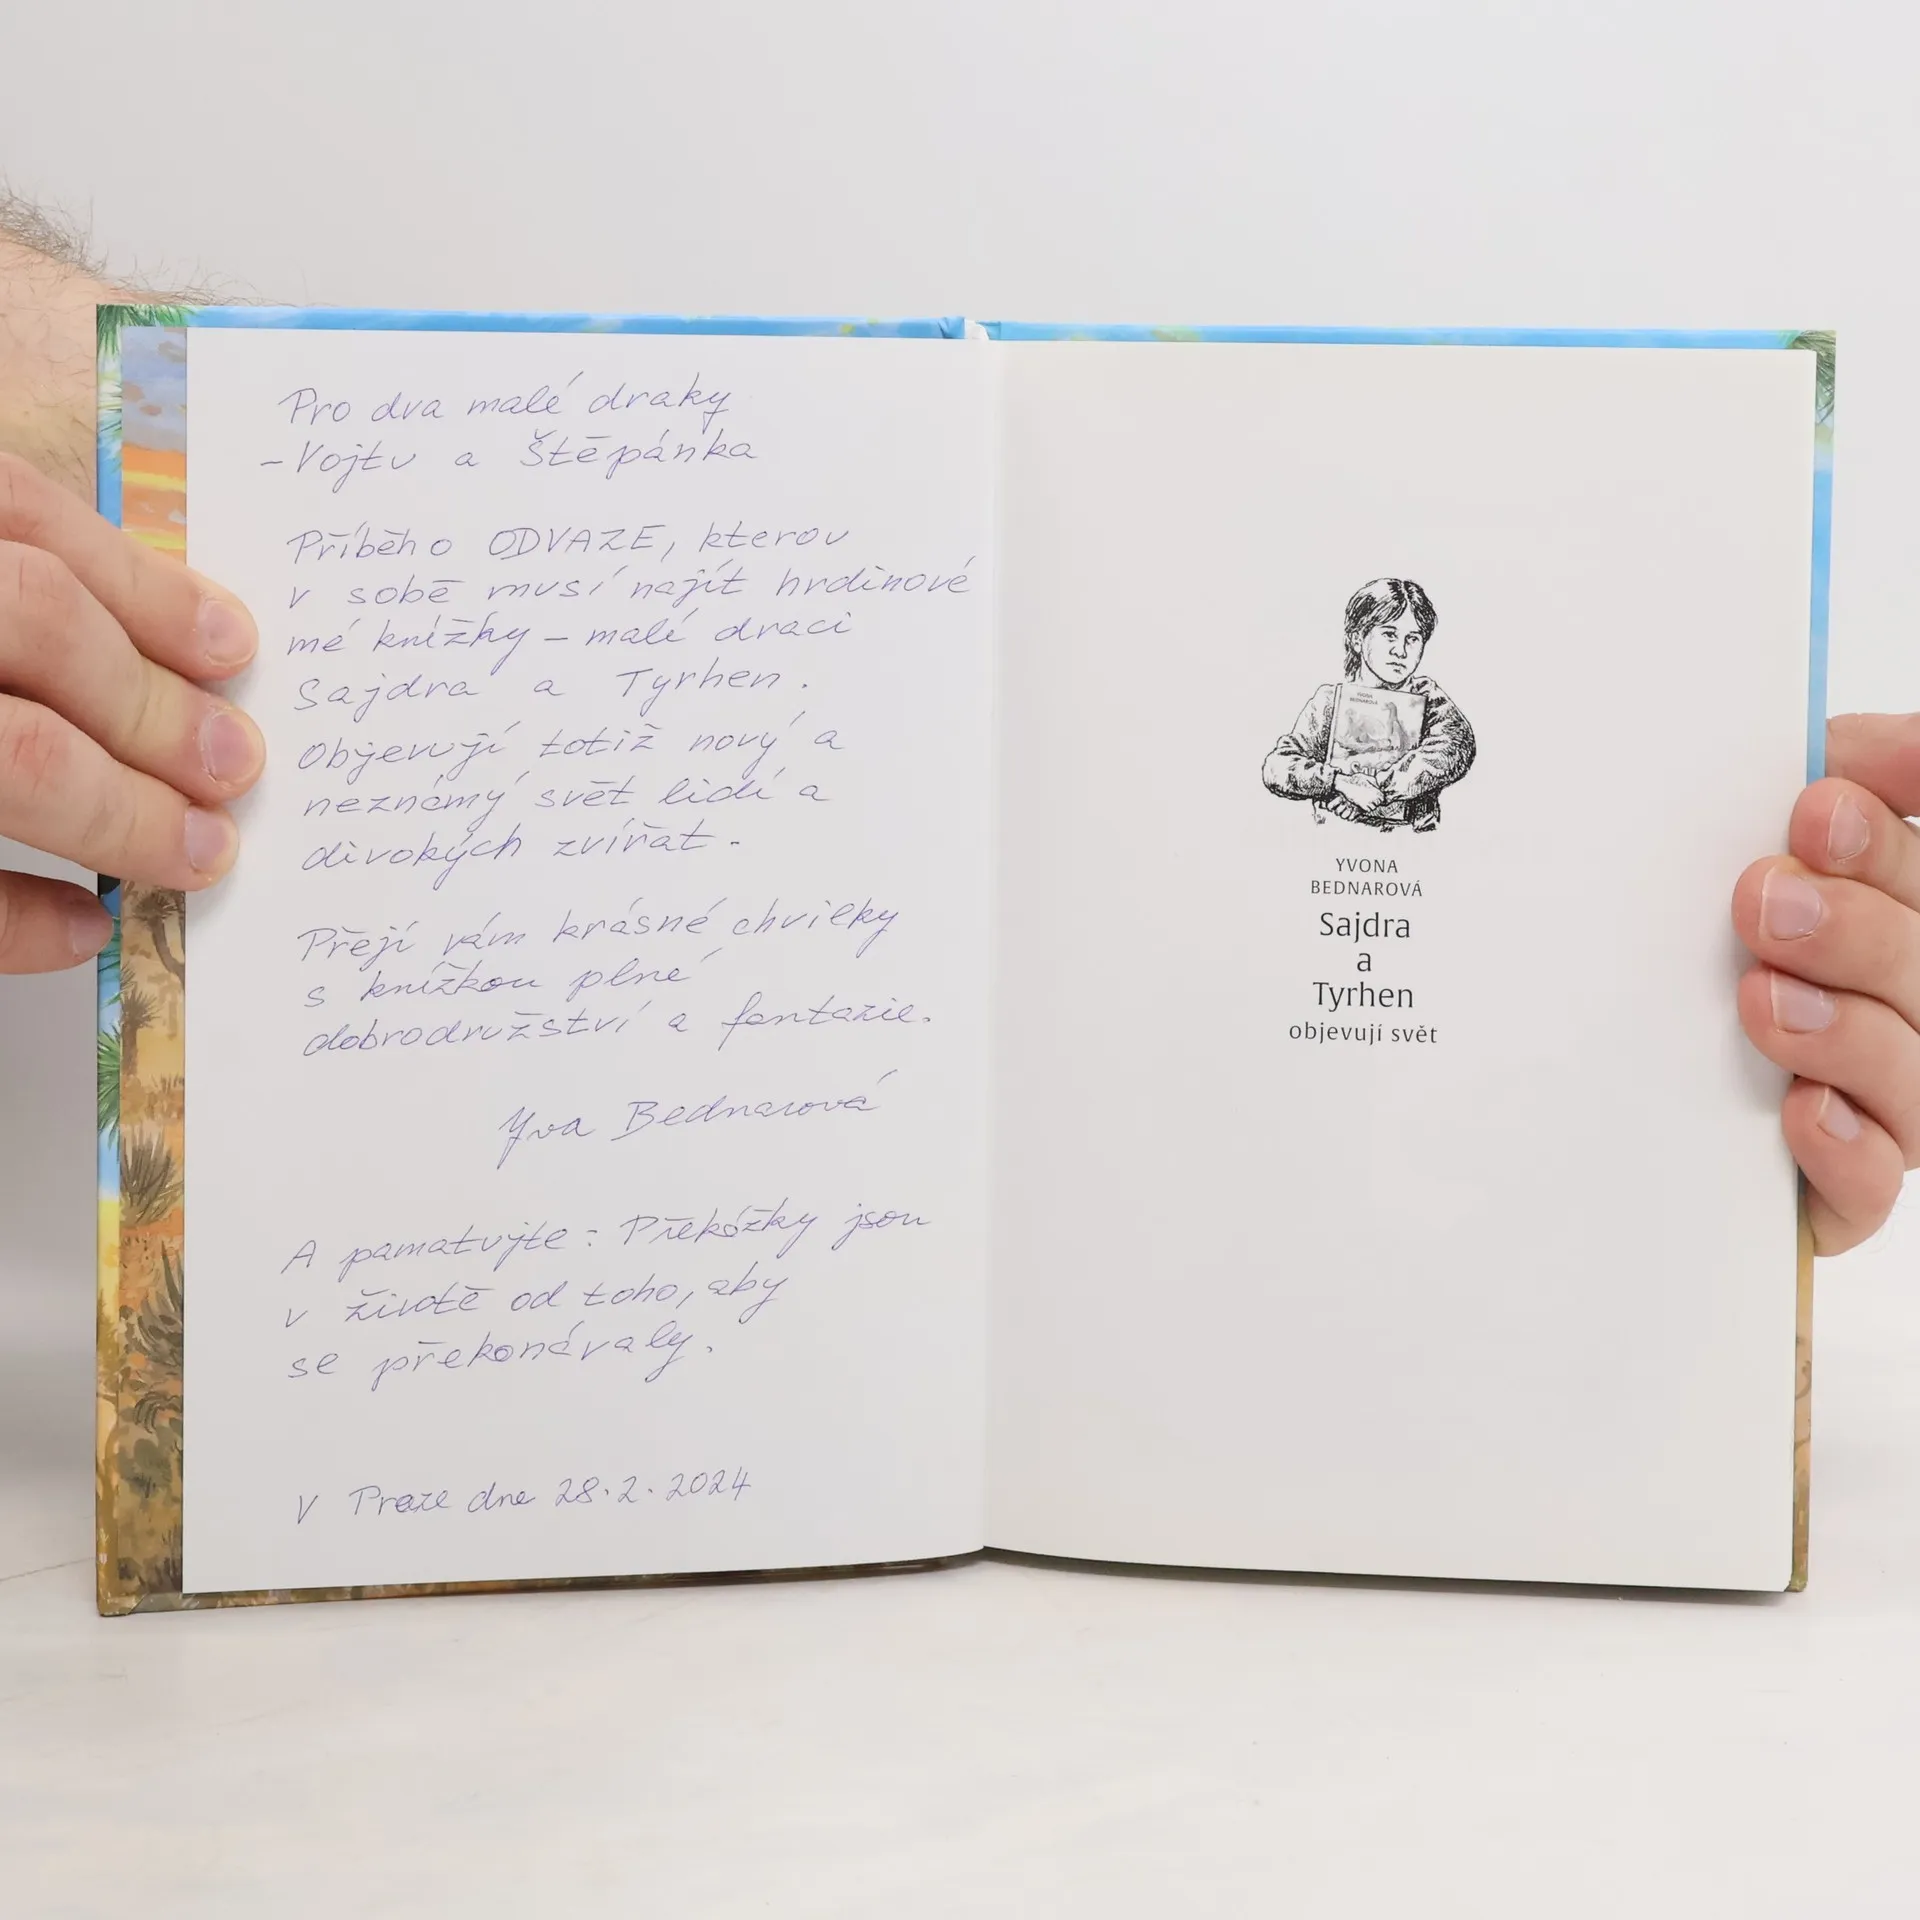 Pro dva malé draky
- Vojtu a Štěpánka
Příběh o ODVAZE, kterou
v sobě musí najít hrdinové
mé knížky – malí draci
Sajdra a Tyrhen.
Objevují totiž nový a
neznámý svět lidí a
divokých zvířat.
Přeji vám krásné chvilky
s knížkou plné
dobrodružství a fantazie.
Yva Bednarová
A pamatujte: Překážky jsou
v životě od toho, aby
se překonávaly.
V Praze dne 28.2.2024
YVONA
BEDNAROVÁ
YVONA
BEDNAROVÁ
Sajdra
a
Tyrhen
objevují svět